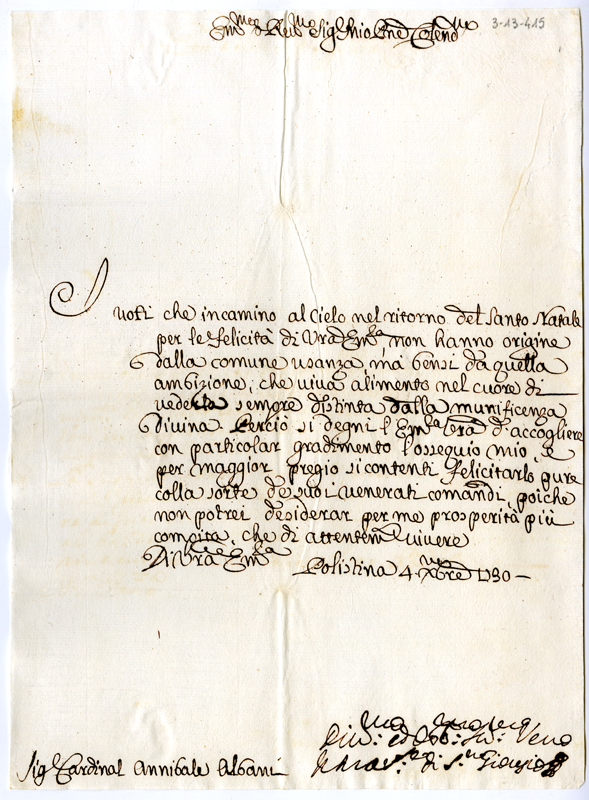 3-13-415
Em.mo e Rev.mo Sig.r Mio P.ne Colend.mo
I voti che incamino al Cielo nel ritorno del Santo Natale
per le felicità di Vra Em.za, non hanno origine
dalla comune usanza, mà bensi da quella
ambizione, che viva alimento nel cuore di
vederla sempre distinta dalla munificenza
divina. Perciò si degni l'Em.za Vra d'accogliere
con particolar gradimento l'ossequio mio, e
per maggior pregio si contenti felicitarlo pure
colla sorte de suoi venerati comandi, poiche
non potrei desiderar per me prosperità più
compita, che di attentem.te vivere
Di Vra Em.za
Polistina 4. Xbre 1730 -
Div.mo ed Obb.mo Ser. Vero
di S. Giorgio
Sig.r Cardinal Annibale Albani